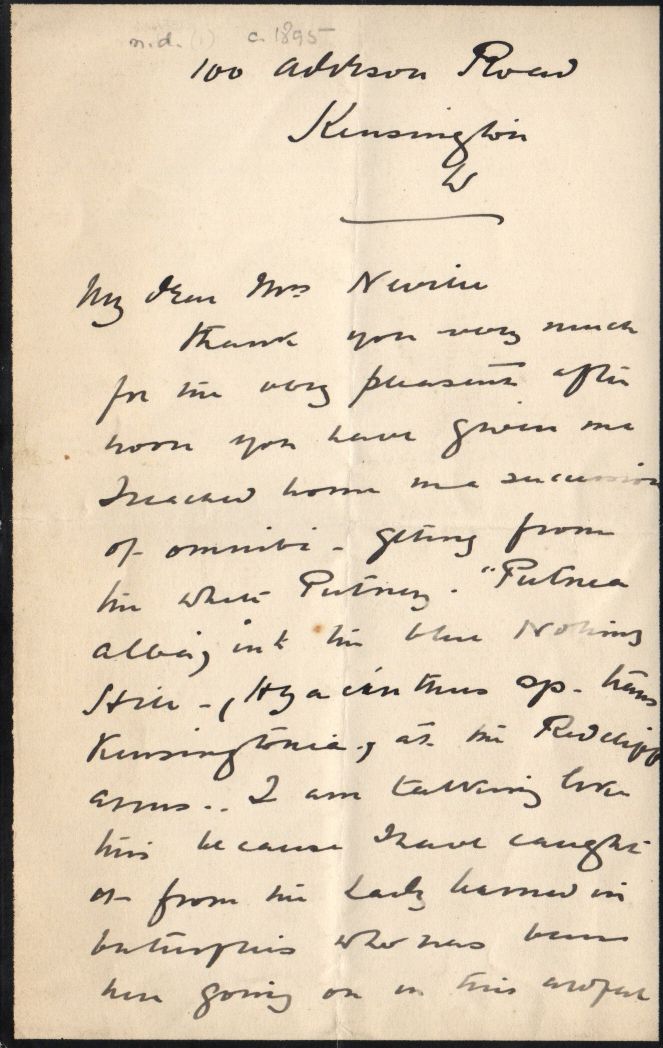 n.d. (1) c. 1895
100 Addison Road
Kensington
W
My dear Mrs
thank you very much
for the very pleasant after
noon you have given me
I reached home in a succession
of omnibi - geting from
the white Putney. "Putnea
alba" into the blue Notting
Hill - (Hyacinthus sp. trans
Kensingtonia, at the Redcliff
arms.. I am talking like
this because I have caught
it from the Lady learned in
butterflies who has been
here going on in this awful